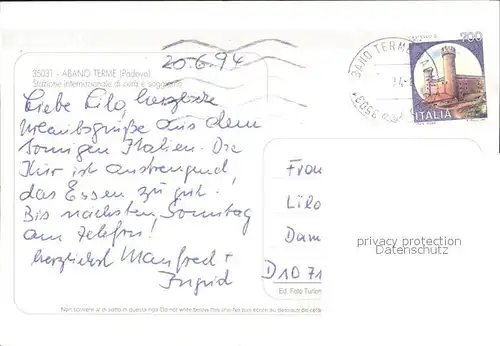 20.6.94
700
35031 - ABANO TERME (Padova)
Stazione internazionale di cura e soggiorno
ABANO TERME
ITALIA
Liebe Lilo, herzliche
Urlaubsgrüße aus dem
sonnigen Italien. Die
Kur ist anstrengend,
das Essen zu gut.
Bis nächsten Sonntag
am Telefon!
herzlichst Manfred +
Ingrid
Frau
Lilo
Dam
D1071
privacy protection
Datenschutz
Ed. Foto Turism
Non scrivere al di sotto di questa riga-Do not write below this line-Ne pas écrire au dessous de cette